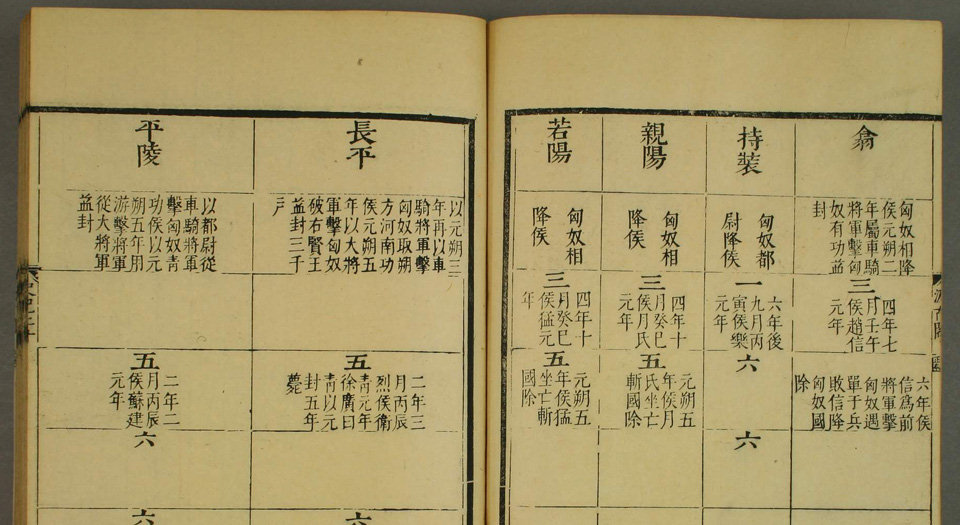 翕
匈奴相降
侯元朔二
年屬車騎
將軍擊匈
奴有功益
封
三
四年七
月壬午
侯趙信
元年
六年侯
信爲前
將軍擊
匈奴遇
單于兵
敗信降
匈奴國
除
持裝
匈奴都
尉降侯
一
六年後
九月丙
寅侯樂
六
六
親陽
匈奴相
降侯
三
四年十
月癸巳
侯月氏
元年
五
元朔五
年侯月
氏坐亡
斬國除
若陽
匈奴相
降侯
三
四年十
月癸巳
侯猛元
年
五
元朔五
年侯猛
坐亡斬
國除
長平
以元朔二
年再以車
騎將軍擊
匈奴取朔
方河南功
侯元朔五
年以大將
軍擊匈奴
破右賢王
益封三千
戶
五
二年三
月丙辰
烈侯衛
靑元年
徐廣曰
靑以元
封五年
薨
六
平陵
以都尉從
車騎將軍
擊匈奴靑
功侯以元
朔五年用
游擊將軍
從大將軍
益封
五
二年二
月丙辰
侯蘇建
元年
六
六